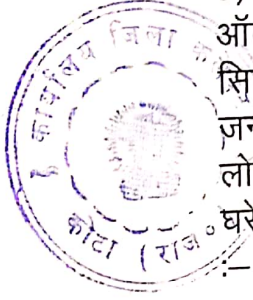 कार्यालय जिला क
कोटा (राज०
ऑ
सि
जन
लो
घरे
:–